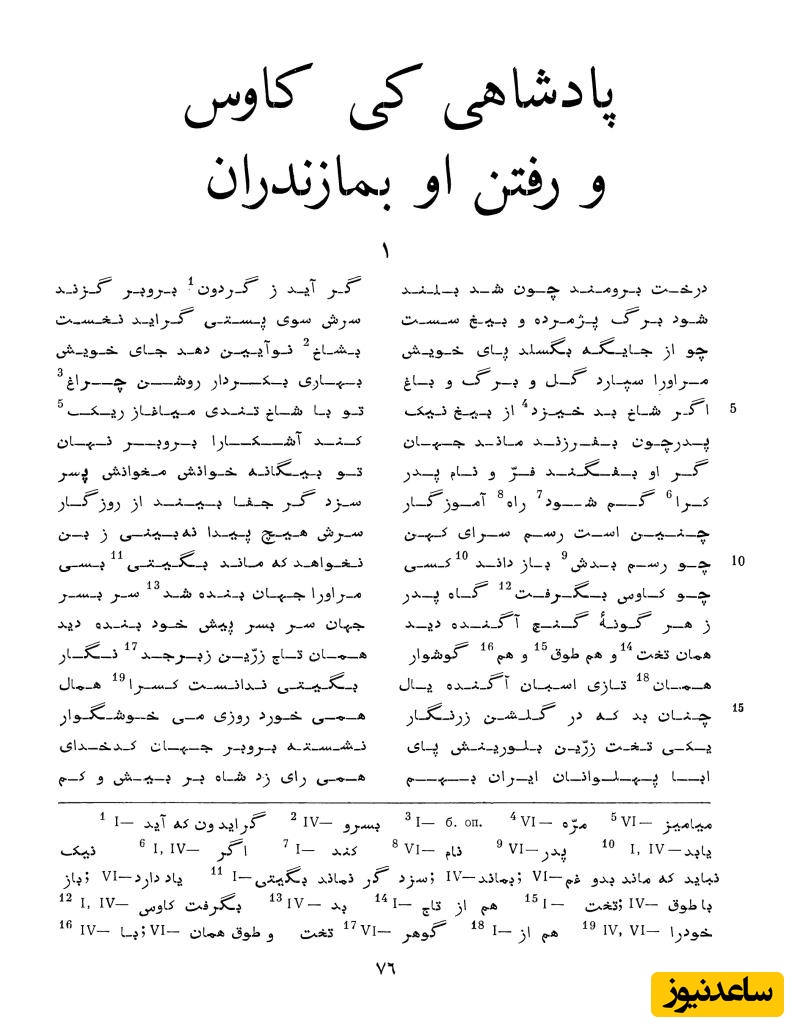 پادشاهی کی کاوس
و رفتن او بمازندران
۱
درخت برومند چون شد بلند گر آید ز گردون1 بروبر گزند
شود برگ پژمرده و بیخ سست سرش سوی پستی گراید نخست
چو از جایگه بگسلد پای خویش بشاخ2 نوآیین دهد جای خویش
مراورا سپارد گل و برگ و باغ بهاری بکردار روشن چراغ3
5 اگر شاخ بد خیزد4 از بیخ نیک تو با شاخ تندی میاغاز ریک5
پدرچون بفرزند ماند جهان کند آشکارا بروبر نهان
گر او بفگند فرّ و نام پدر تو بیگانه خوانش مخوانش پسر
کرا6 گم شود7 راه8 آموزگار سزد گر جفا بیند از روزگار
چنین است رسم سرای کهن سرش هیچ پیدا نه‌بینی ز بن
10 چو رسم بدش9 باز داند10 کسی نخواهد که ماند بگیتی11 بسی
چو کاوس بگرفت12 گاه پدر مراورا جهان بنده شد13 سر بسر
ز هر گونهٔ گنج آگنده دید جهان سر بسر پیش خود بنده دید
همان تخت14 و هم طوق15 و هم16 گوشوار همان تاج زرّین زبرجد17 نگار
همان18 تازی اسبان آگنده یال بگیتی ندانست کسرا19 همال
15 چنان بد که در گلشن زرنگار همی خورد روزی می خوشگوار
یکی تخت زرّین بلورینش پای نشسته بروبر جهان کدخدای
ابا پهلوانان ایران بهم همی رای زد شاه بر بیش و کم
1 I— گرایدون که آید 2 IV— بسرو 3 I— б. оп. 4 VI— مرّه 5 VI— میامیز
6 I, IV— اگر 7 I— کند 8 VI— نام 9 VI— پدر 10 I, IV— یابد
نیک
11 I— سزد گر نماند بگیتی; IV— بماند; VI— نباید که ماند بدو غم یاد دارد VI—; باز
12 I, IV— بگرفت کاوس 13 IV— بد 14 I— هم از تاج 15 I— تخت; IV— با طوق
16 IV— با; VI— تخت و طوق همان 17 VI— گوهر 18 I— هم از 19 IV, VI— خودرا
۷۶
ساعدنیوز